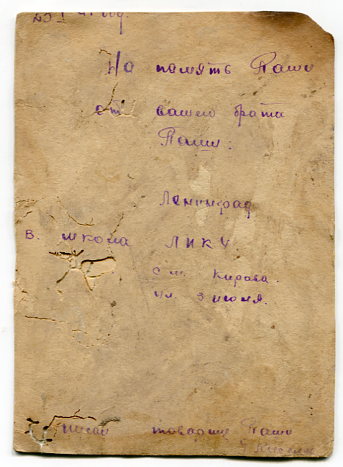 На память Паше
от вашего брата
Паши.
Ленинград
В. школа ЛИКУ
с.м. Кирова.
ул 3 июля.
писал товарищ Паши